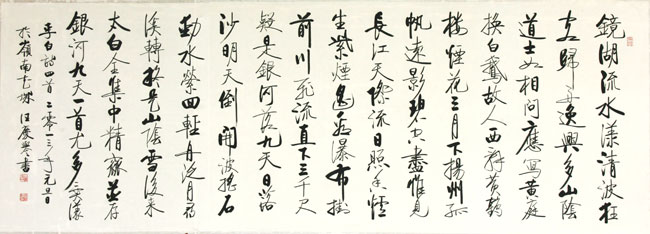 鏡湖流水漾清波狂
客歸舟逸興多山陰
道士如相問應寫黃庭
換白鵝故人西辭黃鶴
樓煙花三月下揚州孤
帆遠影碧空盡惟見
長江天際流日照香爐
生紫煙遙看瀑布掛
前川飛流直下三千尺
疑是銀河落九天日落
沙明天倒開波搖石
動水縈回輕舟泛月尋
溪轉疑是山陰雪後來
太白全集中精並存
銀河九天一首尤多
李白詩四首二零一三年元旦日
於嶺南花城汪慶書